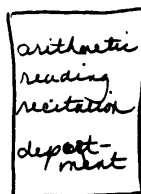 arithmetic
reading
recitation
deport-
ment